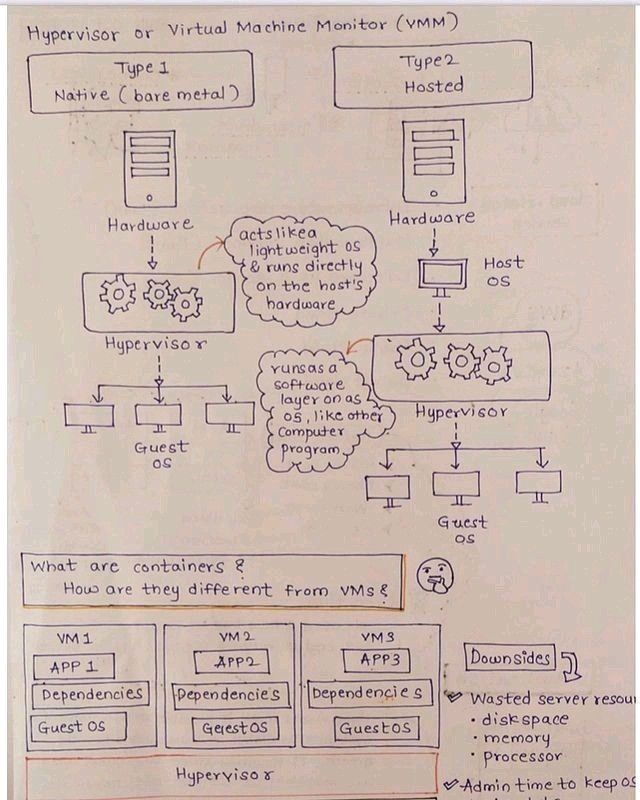 Hypervisor or Virtual Machine Monitor (VMM)
Type 1
Native (bare metal)
Type 2
Hosted
Hardware
acts like a
lightweight OS
& runs directly
on the host's
hardware
Hypervisor
Guest
OS
Hardware
Host
OS
runs as a
software
layer on as
OS, like other
Computer
program
Hypervisor
Guest
OS
What are containers &
How are they different from VMs &
VM1
APP 1
Dependencies
Guest OS
VM2
APP2
Dependencies
Guest OS
VM3
APP3
Dependencies
Guest OS
Hypervisor
Downsides
✓ Wasted server resou
• disk space
• memory
• processor
✓ Admin time to keep OS